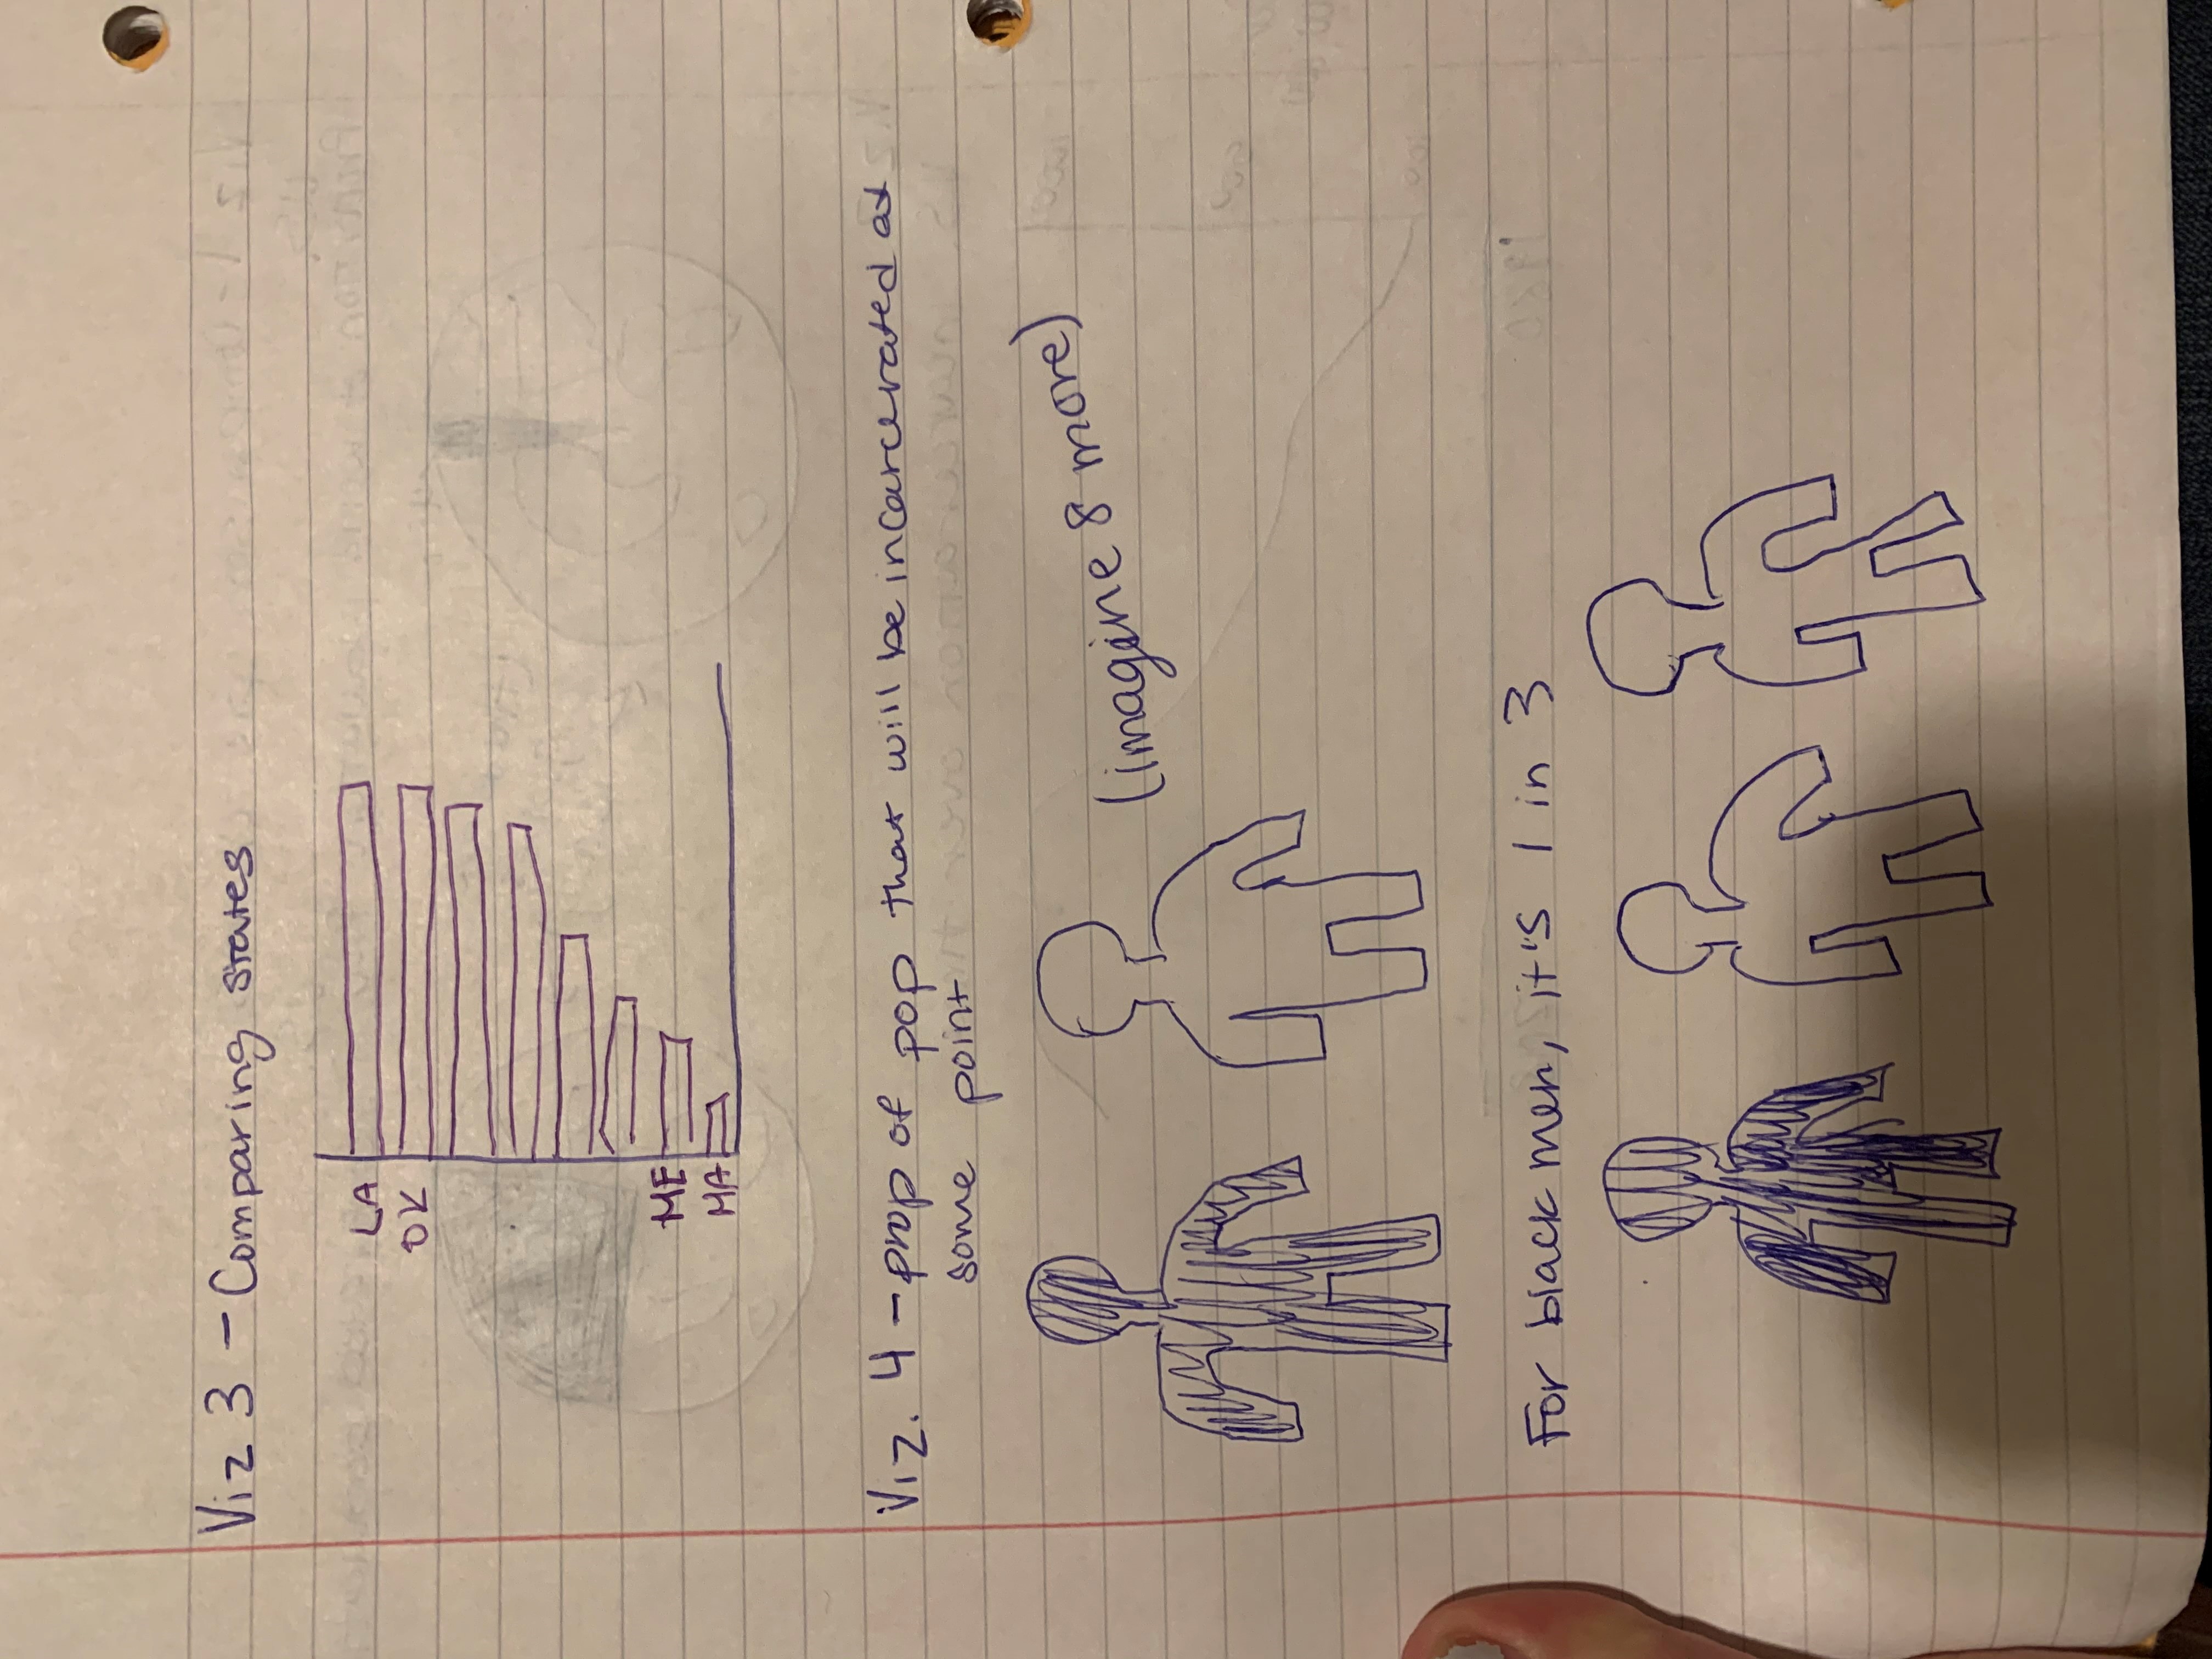 Viz 3 - Comparing states
LA
OK
ME
MA
Viz. 4 - prop of pop that will be incarcerated at
some point
(imagine 8 more)
For black men, it's 1 in 3